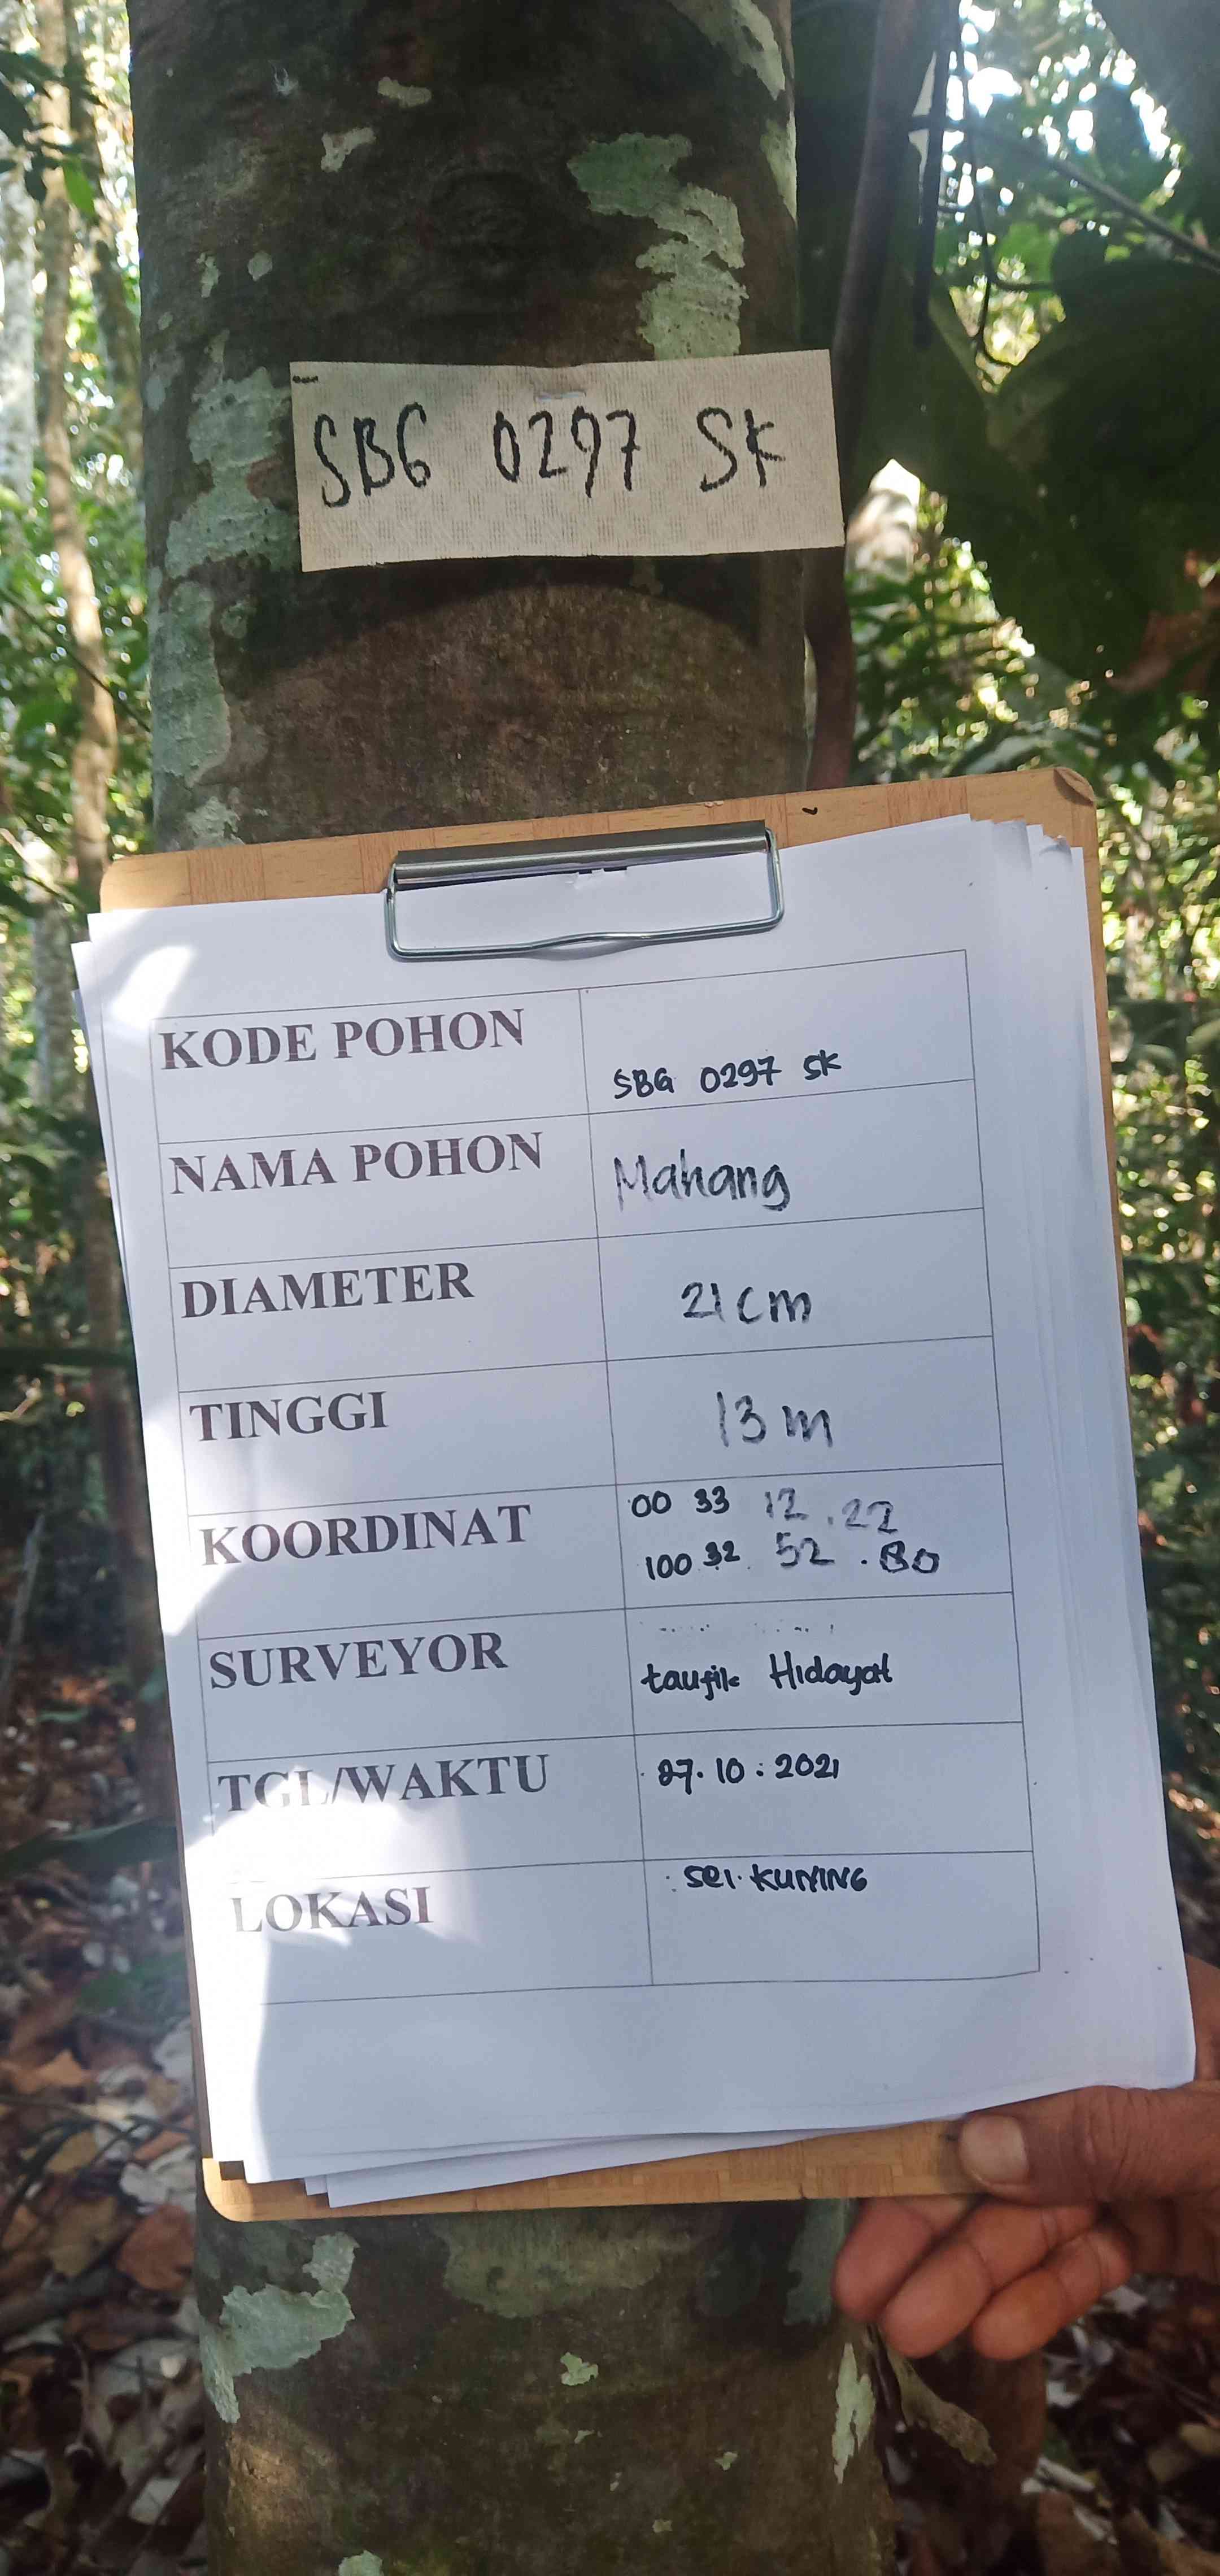 SBG 0297 SK
KODE POHON
SBG 0297 SK
NAMA POHON
Mahang
DIAMETER
21 cm
TINGGI
13 m
KOORDINAT
00 33 12.22
100 32. 52.80
SURVEYOR
taufik Hidayat
TGL/WAKTU
27.10:2021
LOKASI
: sei.KUNING